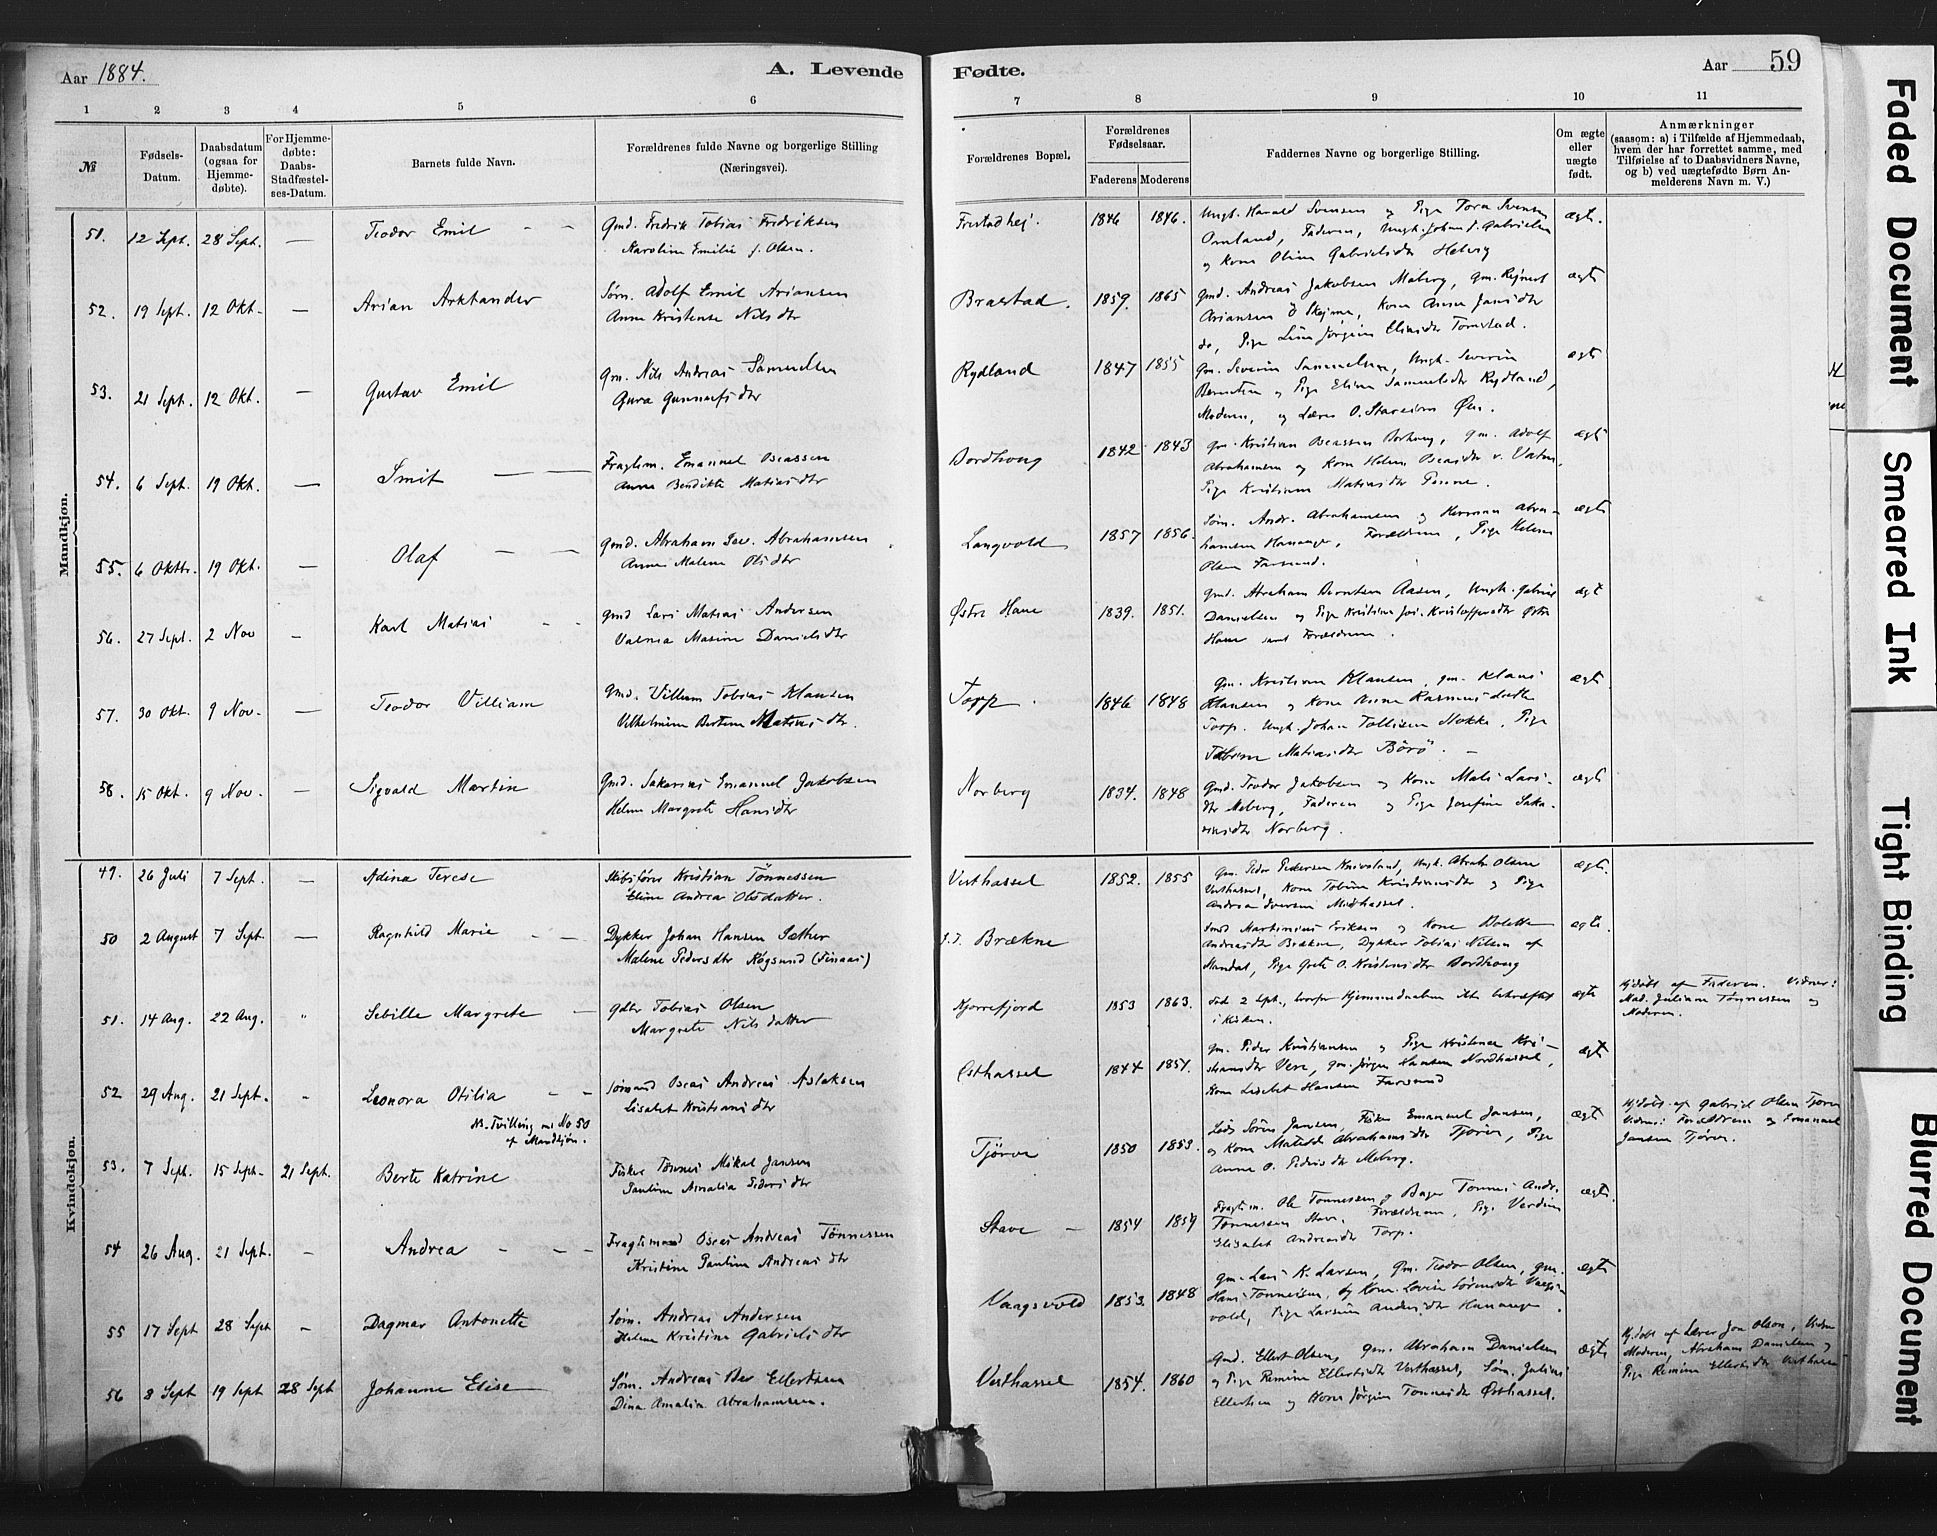 Aar 1884.
A. Levende
Fødte.
Aar 59
1 2 3 4 5 6 7 8 9 10 11
№
Fødsels-Datum.
Daabsdatum (ogsaa for Hjemme-døbte).
For Hjemme-døbte: Daabs-Stadfæstel-ses-Datum.
Barnets fulde Navn.
Forældrenes fulde Navne og borgerlige Stilling (Næringsvei).
Forældrenes Bopæl.
Forældrenes Fødselsaar.
Faderens Moderens
Faddernes Navne og borgerlige Stilling.
Om ægte eller uægte født.
Anmærkninger (saasom: a) i Tilfælde af Hjemmedaab, hvem der har forrettet samme, med Tilføielse af to Daabsvidners Navne, og b) ved uægtefødte Børn An-melderens Navn m. V.)
Mandkjøn.
51. 12 Sept. 28 Sept. — Teodor Emil
Gmd. Fredrik Tobias Fredriksen
Karoline Emilie f. Olsen.
1846 1846.
Ungk. Harald Svensen og Pige Tora Svensen
Omland, Faderen, Ungk. Johan J. Gabrielsen
og Kone Oline Gabrielsdtr Heberg
ægt.
52. 19 Sept. 12 Okt. — Arian Arktander
Søm. Adolf Emil Ariansen
Anne Kristense Nilsdtr
Brastad. 1859. 1865
Gmd. Andreas Jakobsen Meberg, Gm. Rejnert
Ariansen Ø Skejme, Kone Anne Jansdtr
do, Pige Lisa Jørgine Elisdtr Tomstad.
ægt
53. 21 Sept. 12 Okt. — Gustav Emil
Gm. Nils Andreas Samuelsen
Gura Gunnufsdtr
Rydland 1847 1855
Gm. Severin Samuelsen, Ungk. Severin
Berntsen og Pige Eline Samuelsdtr Rydland,
Moderen, og Lærer O. Stareim Øen.
ægt
54. 6 Sept. 19 Okt. — Smit
Fragtm. Emanuel Oseassen
Anne Bendikte Matiasdtr
Bordhoug 1842 1843
Gm. Kristian Oseassen Borhoug, Gm. Adolf
Abrahamsen og Kone Helene Oseasdtr v. Vatne,
Pige Kristiane Matiasdtr
ægt
55. 6 Oktbr. 19 Okt. — Olaf
Gmd. Abraham Sev. Abrahamsen
Anne Malene Olsdtr
Langvold 1857 1856.
Søm. Andr. Abrahamsen og Herman Abra-
hamsen Hananger, Forældrene, Pige Helene
Olsen Farsund.
ægt
56. 27 Sept. 2 Nov — Karl Matias
Gmd Lars Matias Andersen
Valnea Masine Danielsdtr
Østre Hane 1839. 1851.
Gmd. Abraham Berntsen Aasen, Ungk. Gabriel
Danielsen og Pige Kristine Jos. Kristoffersdtr Østre
Hane samt Forældrene.
ægt
57. 30 Okt. 9 Nov. — Teodor Villiam
Gmd. Villum Tobias Klausen
Vilhelmine Bertine Matiasdtr.
Torp. 1846 1848
Gm. Kristian Klausen, Gm. Klaus
Klausen og Kone Anne Rasmusdatter
Torp. Ungk. Johan Tollisen Stokke, Pige
Tobine Matiasdtr Börö. —
ægt.
58. 15 Okt. 9 Nov. — Sigvald Martin
Gmd. Sakarias Emanuel Jakobsen
Helene Margrete Hansdtr
Norberg 1834. 1848
Gmd. Teodor Jakobsen og Kone Mate Lars-
dtr Meberg, Faderen og Pige Josefine Saka-
riasdtr Norberg.
ægt
Kvindekjøn.
49. 26 Juli 7 Sept. — Adina Terese
Skibsfører Kristian Tönnessen
Eline Andrea Olsdatter.
Vesthassel 1852. 1855
Gm. Peder Pedersen Kniveland, Ungk. Abrah. Olsen
Vesthassel, Kone Tobine Kristiansdtr og Pige
Andrea Iversen Midhassel.
ægt.
50 2 August 7 Sept. — Ragnhild Marie
Dykker Johan Hansen Sæther
Malene Pedersdtr Røgsund (Finaas)
Brækne
Smed Martinius Eriksen og Kone Bolette
Andreasdtr Brækne, Dykker Tobias Nilsen af
Mandal, Pige Grete O. Kristensdtr Bordhoug
ægte.
51. 14 Aug. 22 Aug. " Sebille Margrete —
Tobias Olsen
Margrete Nilsdatter
Kjørrefjord 1853 1863.
død 2 Sept., hvorfor Hjemmedaaben ikke bekræftet
i Kirken.
ægte
Hjdøbt af Faderen. Vidner:
Mad. Juliane Tønnessen og
Moderen.
52 29 Aug. 21 Sept. - Leonora Otilia
NB. Tvilling m. No 50
af Mandkjøn.
Sømand Oseas Andreas Aslaksen
Lisabet Kristiansdtr
Østhassel 1844 1857.
Gm. Peder Kristiansen og Pige Kristense Kri-
stiansdtr Vere, Gm. Jørgen Hansen Nordhassel,
Kone Lisabet Hansen Farsund
ægt
53. 7 Sept. 15 Sept. 21 Sept. Berte Katrine
Fisker Tønnes Mikal Jansen
Pauline Amalia Pedersdtr
Tjørve 1850 1853.
Lods Sören Jansen, Fisker Emanuel Jansen,
og Kone Matilde Abrahamsdtr Tjørve, Pige
Anne O. Pedersdtr Meberg.
ægt
Hjdøbt af Gabriel Olsen Tjørve
Vidner: Forældrene og Emanuel
Jansen Tjørve.
54 26 Aug. 21 Sept. - Andrea
Fragtemand Oseas Andreas Tönnessen
Kristine Pauline Andreasdtr
Stave — 1854 1859
Fragtm. Ole Tønnessen og Bager Tønnes Andr.
Tønnessen Stave. Forældrene, Pige Verdine
Elisabet Andreasdtr Torp.
ægte.
55 17 Sept 28 Sept — Dagmar Antonette
Søm. Andreas Andersen
Helene Kristine Gabrielsdtr
Vaagsvold 1853. 1848
Gm. Lars K. Larsen, Gm. Teodor Olsen, Gm.
Hans Tønnesen, og Kone Lovise Sörensdtr Vaags-
vold, Pige Larsine Andersdtr Hananger.
ægte
56 8 Sept 19 Sept 28 Sept Johanne Elise
Søm. Andreas Ber Ellertsen
Dina Amalia Abrahamsen.
Vesthassel 1854. 1860
Gmd. Ellert Olsen, Gm. Abraham Danielsen
og Pige Remine Ellertsdtr Vesthassel, Søm. Julius
Ellertsen og Kone Jørgine Tønnesdtr Østhassel.
ægte
Hjdøbt af Lærer Jon Olson, Vidner
Moderen, Abraham Danielsen og
Pige Remine Ellertsdtr Vesthassel
Faded Document
Smeared Ink
Tight Binding
Blurred Document